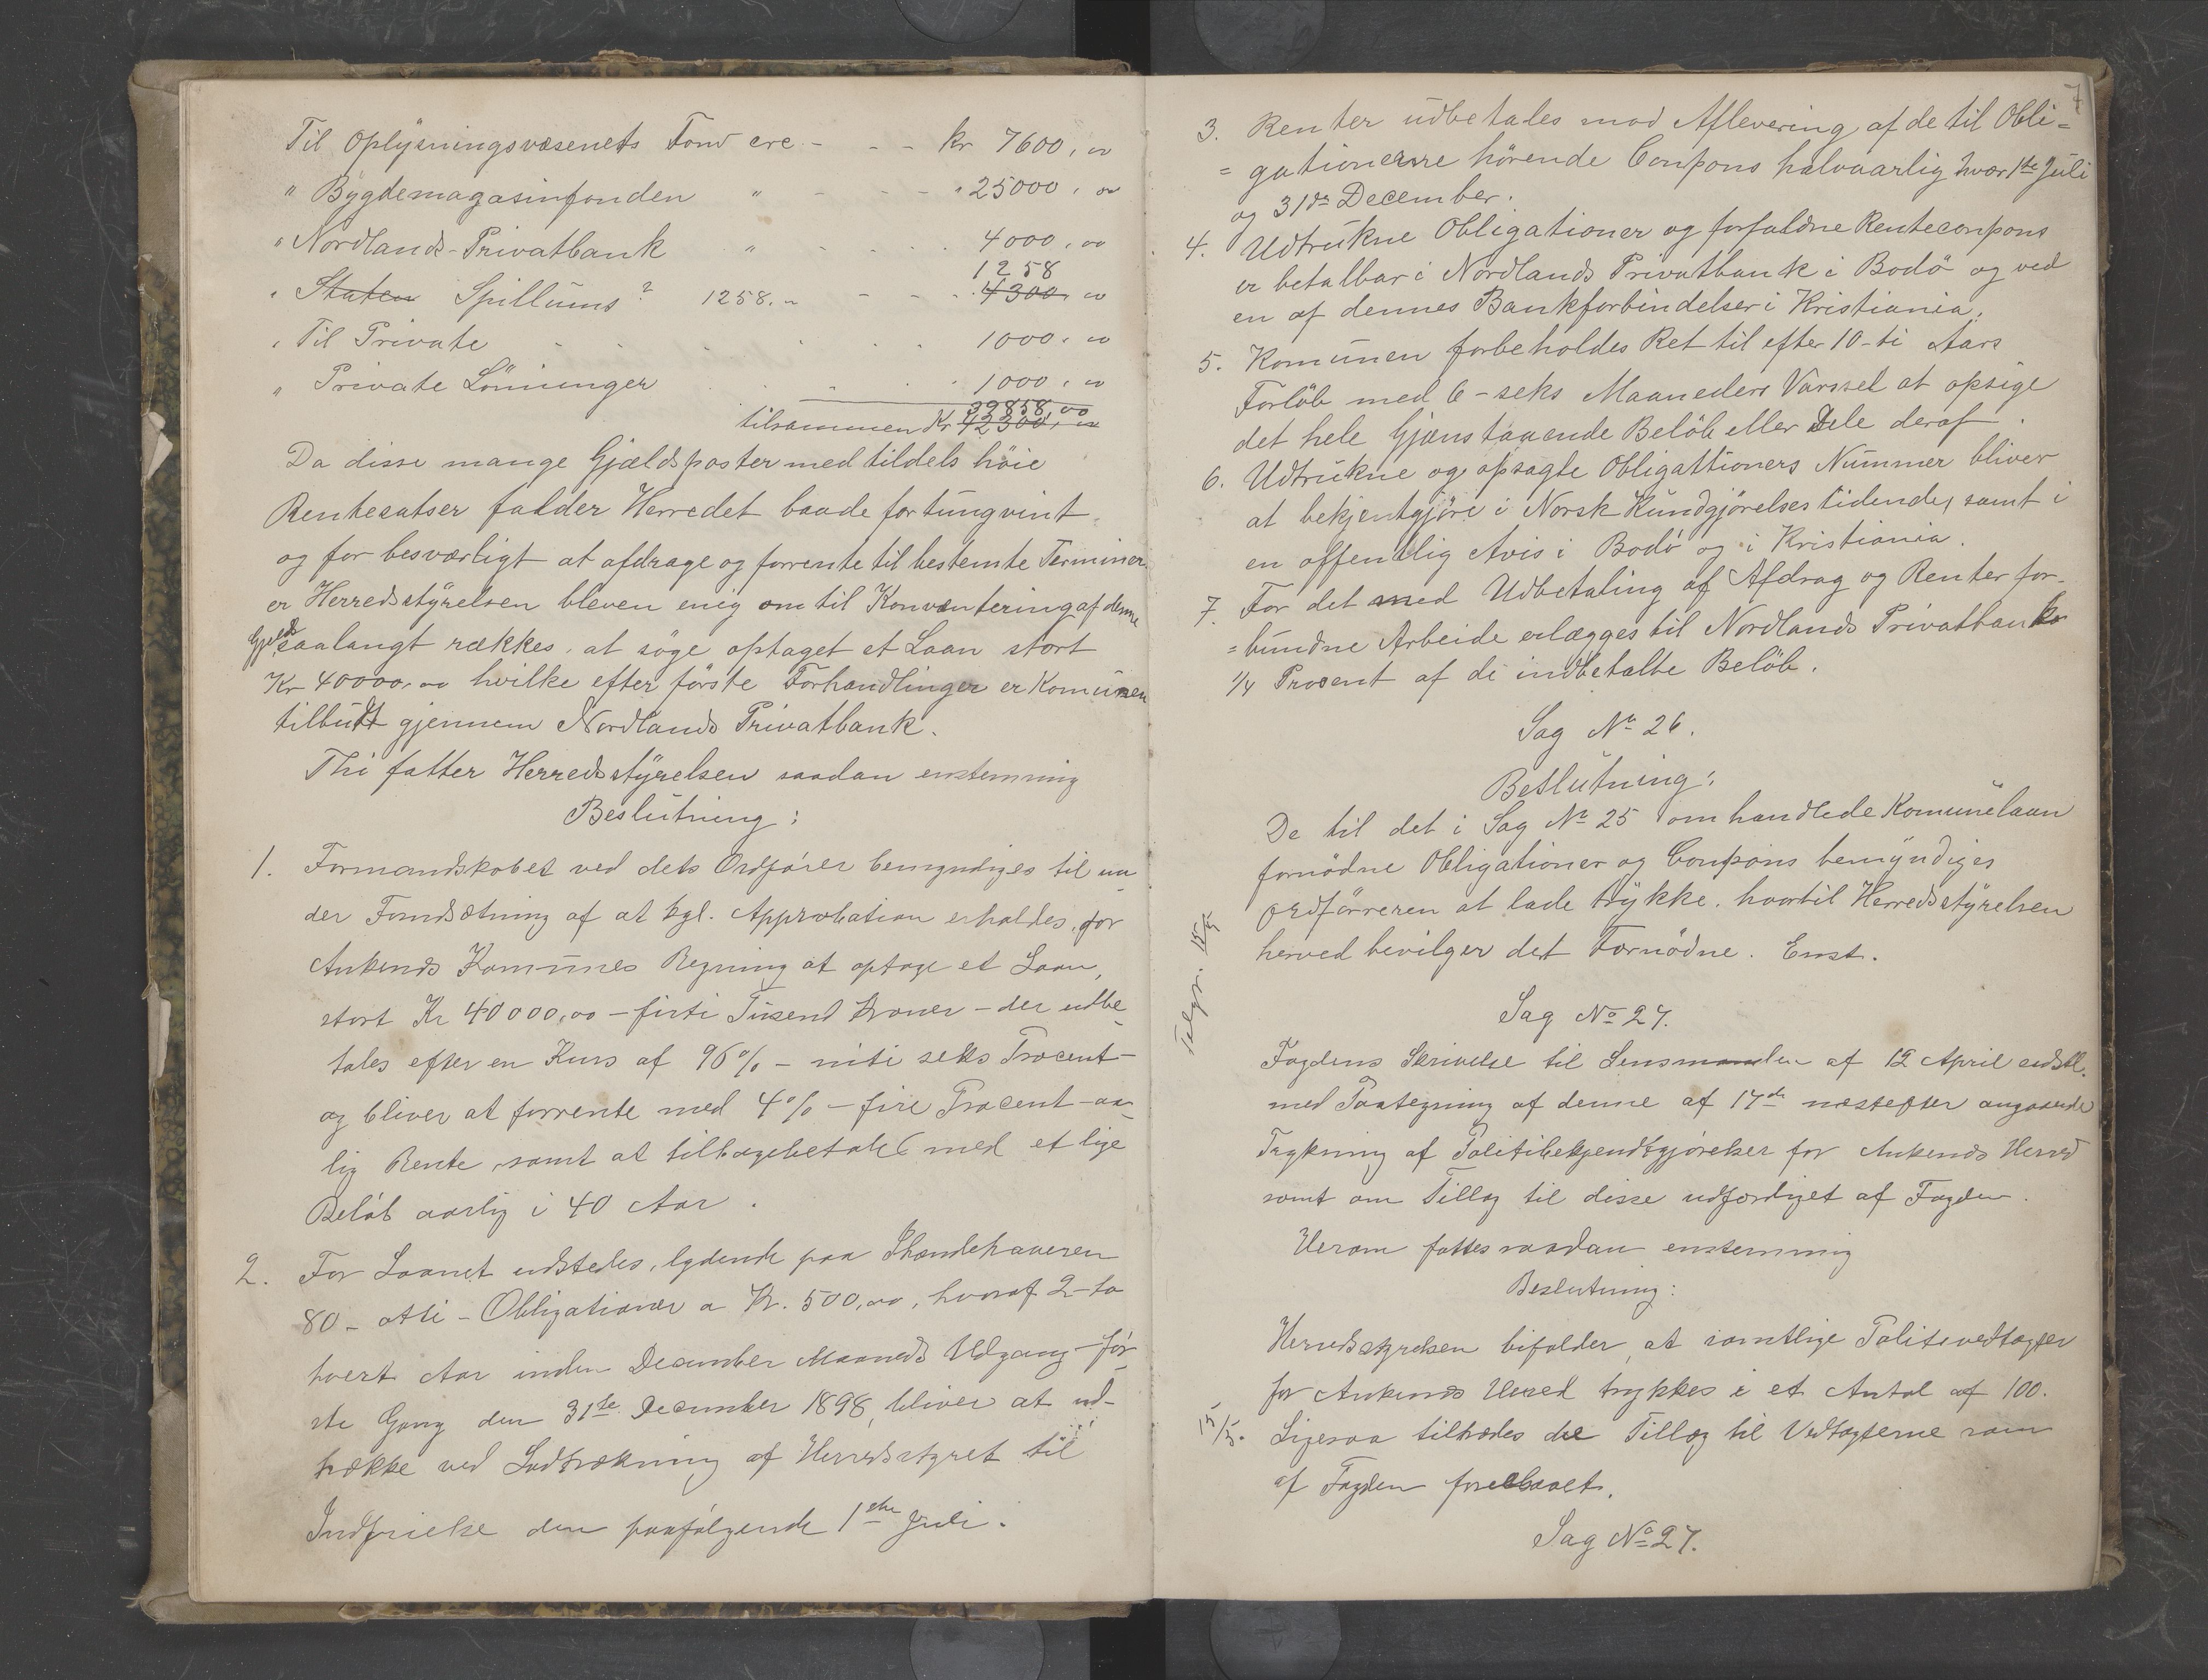 Til Oplysningsvæsenets Fond ere - - - kr 7600,00
" Bygdemagasinfonden " - - - " 25000,00
" Nordlands-Privatbank " - - - - 4000,00
1258
" Staten Spillums? 1258.- - - - 4300,00
" Til Private - - - - - - 1000,00
" Private Lönninger - - - - - 1000,00
39858,00
tilsammen Kr 42300,00
Da disse mange Gjældsposter med tildels höie
Rentesatser falder Herredet baade for tungvint
og for besværligt at afdrage og forrente til bestemte Terminer
er Herredsstyrelsen bleven enig om til Konvæntering af denne
Gjeld saalangt rækkes, at söge optaget et Laan stort
Kr 40000,00 hvilke efter förste Forhandlinger er Komunen
tilbudt gjennem Nordlands Privatbank.
Thi fatter Herredsstyrelsen saadan enstemmig
Beslutning:
1. Formandskabet ved dets Ordförer bemyndiges til un-
der Forudsætning af at kgl. Approbation erholdes, for
Ankenes Komunes Regning at optage et Laan,
stort Kr 40000,00 - firti Tusend Kroner - der udbe-
tales efter en Kurs af 96% - niti seks Procent -
og bliver at forrente med 4% - fire Procent - aar-
lig Rente, samt at tilbagebetale med et lige
Beløb aarlig i 40 Aar.
2. For Laanet udstedes, lydende paa Ihændehaveren
80 - otti - Obligationer a Kr. 500,00, hvoraf 2 - to
hvert Aar inden December Maaneds Udgang -för-
ste Gang den 31te December 1898, bliver at ud-
trække ved Lodtrækning af Herredsstyret til
Indfrielse den paafølgende 1ste Juli.
7
3. Renter udbetales mod Aflevering af de til Obli=
=gationerne hörende Coupons halvaarlig hver 1ste Juli
og 31de December.
4. Udtrukne Obligationer og forfaldne Rentecoupons
er betalbar i Nordlands Privatbank i Bodö og ved
en af dennes Bankforbindelser i Kristiania.
5. Komunen forbeholdes Ret til efter 10-ti Aars
Forlöb med 6-seks Maaneders Varsel at opsige
det hele Gjenstaaende Belöb eller Dele deraf.
6. Udtrukne og opsagte Obligattioners Nummer bliver
at bekjentgjöre i Norsk Kundgjörelsestidende, samt i
en offentlig Avis i Bodö og i Kristiania.
7. For det med Udbetaling af Afdrag og Renter for-
=bundne Arbeide erlægges til Nordlands Privatbank
1/4 Prosent af de indbetalte Belöb.
Sag No 26.
Beslutning:
De til det i Sag No 25 omhandlede Komunelaan
fornödne Obligationer og Coupons bemyndiges
Ordförreren at lade trykke, hvortil Herredsstyrelsen
herved bevilger det Fornödne. Enst.
Sag No 27.
Fogdens Skrivelse til Lensmanden af 12 April sidstl.
med Paategning af denne af 17de næstefter angaaende
Trykning af Politibekjendtgjørelser for Ankenes Herred
samt om Tillæg til disse udfærdiget af Fogden.
Herom fattes saadan enstemmig
Beslutning:
Herredsstyrelsen bifalder, at samtlige Politivedtægter
for Ankenes Herred trykkes i et Antal af 100.
15/5. Ligesaa tiltrædes de Tillæg til Vedtægterne som
af Fogden foreslaaet.
Sag No 27.